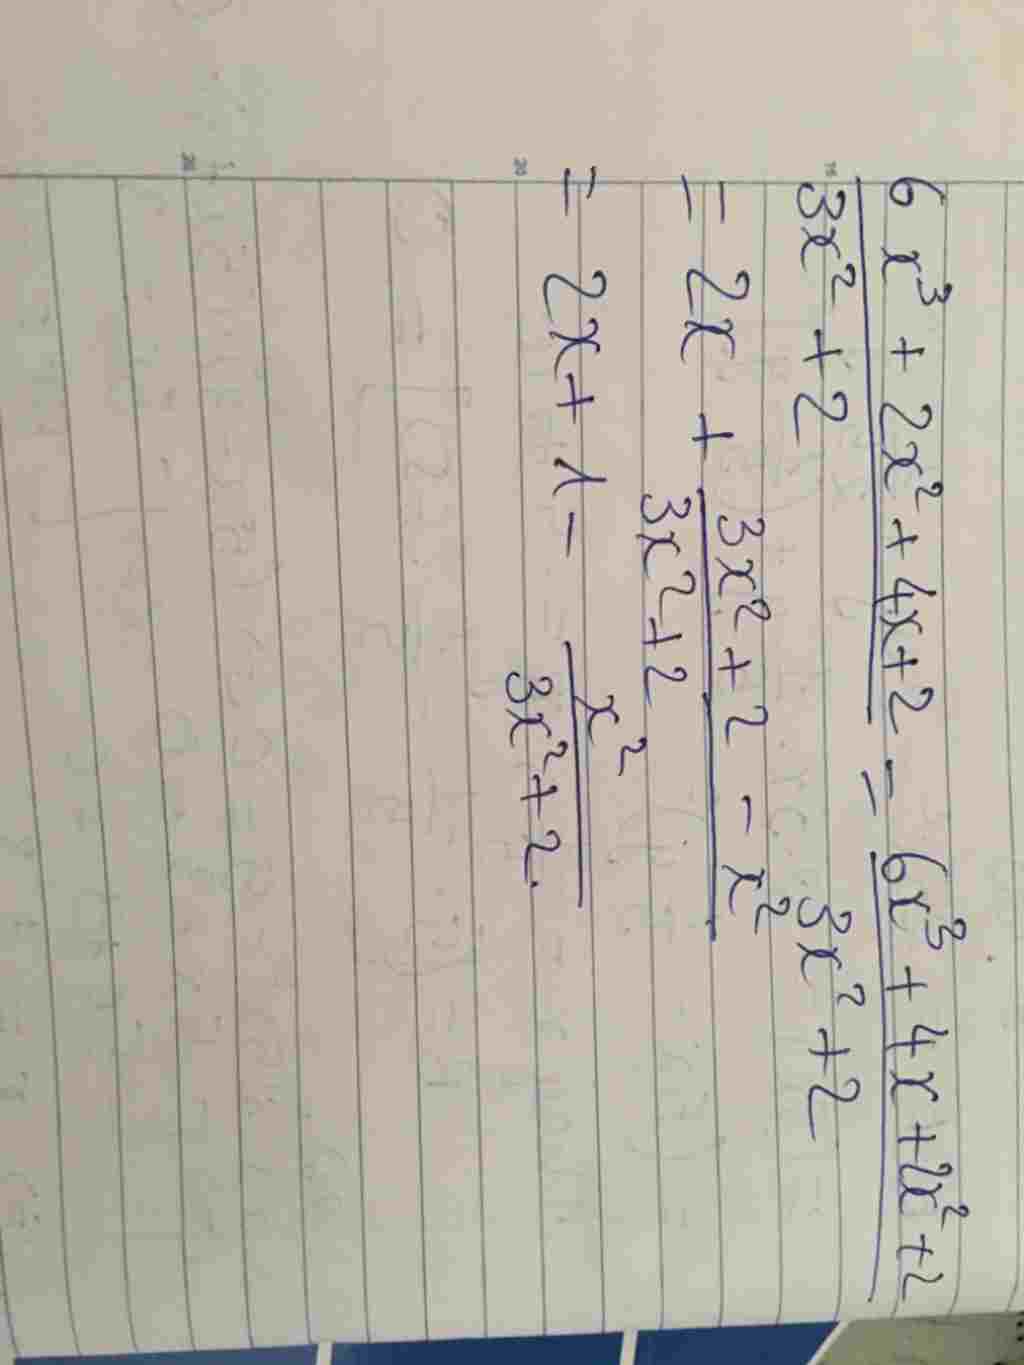 6x³ + 2x² + 4x + 2 = 6x³ + 4x + 2x² + 2
3x² + 2 3x² + 2
= 2x + 3x² + 2 - x²
3x² + 2
= 2x + 1 - x²
3x² + 2.